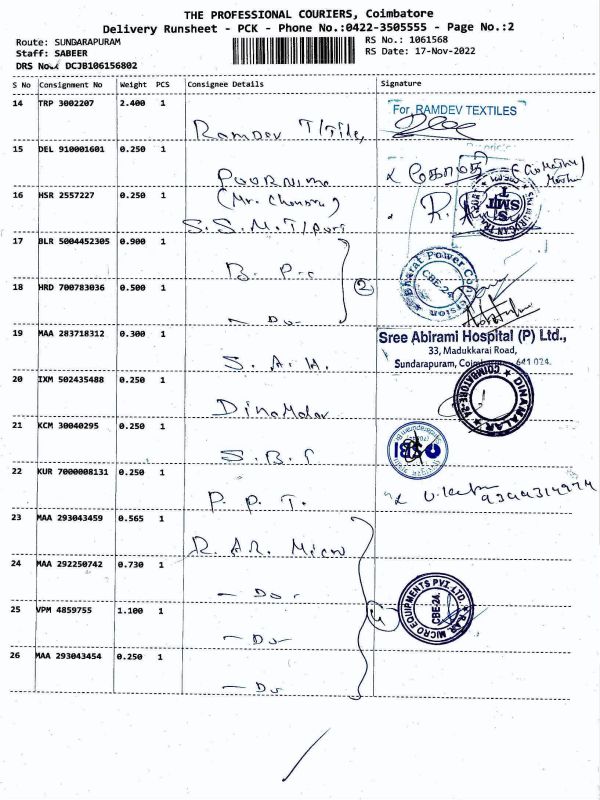 THE PROFESSIONAL COURIERS, Coimbatore
Delivery Runsheet - PCK - Phone No.:0422-3505555 - Page No.:2
Route: SUNDARAPURAM
Staff: SABEER
DRS No. DCJB106156802
RS No.: 1061568
RS Date: 17-Nov-2022
S No Consignment No Weight PCS Consignee Details Signature
14 TRP 3002207 2.400 1
Ramdev
For RAMDEV TEXTILES
15 DEL 910001601 0.250 1
Poornima
கோமதி
16 HSR 2557227 0.250 1
(Mr.
S.S.M.
17 BLR 5004452305 0.900 1
B. P.
Bharat Power
CBE-24.
18 HRD 700783036 0.500 1
- Do -
2
19 MAA 283718312 0.300 1
S. A. H.
Sree Abirami Hospital (P) Ltd.,
33, Madukkarai Road,
Sundarapuram, 641 024.
20 IXM 502435488 0.250 1
Dinamalar
DINAMALAR
COIMBATORE
21 KCM 30040295 0.250 1
S.B.I
SBI
22 KUR 7000008131 0.250 1
P. P. T.
23 MAA 293043459 0.565 1
R. AR. Micro
24 MAA 292250742 0.730 1
- Do -
25 VPM 4859755 1.100 1
- Do -
4
RAR MICRO EQUIPMENTS PVT. LTD.
CBE-24.
26 MAA 293043454 0.250 1
- Do